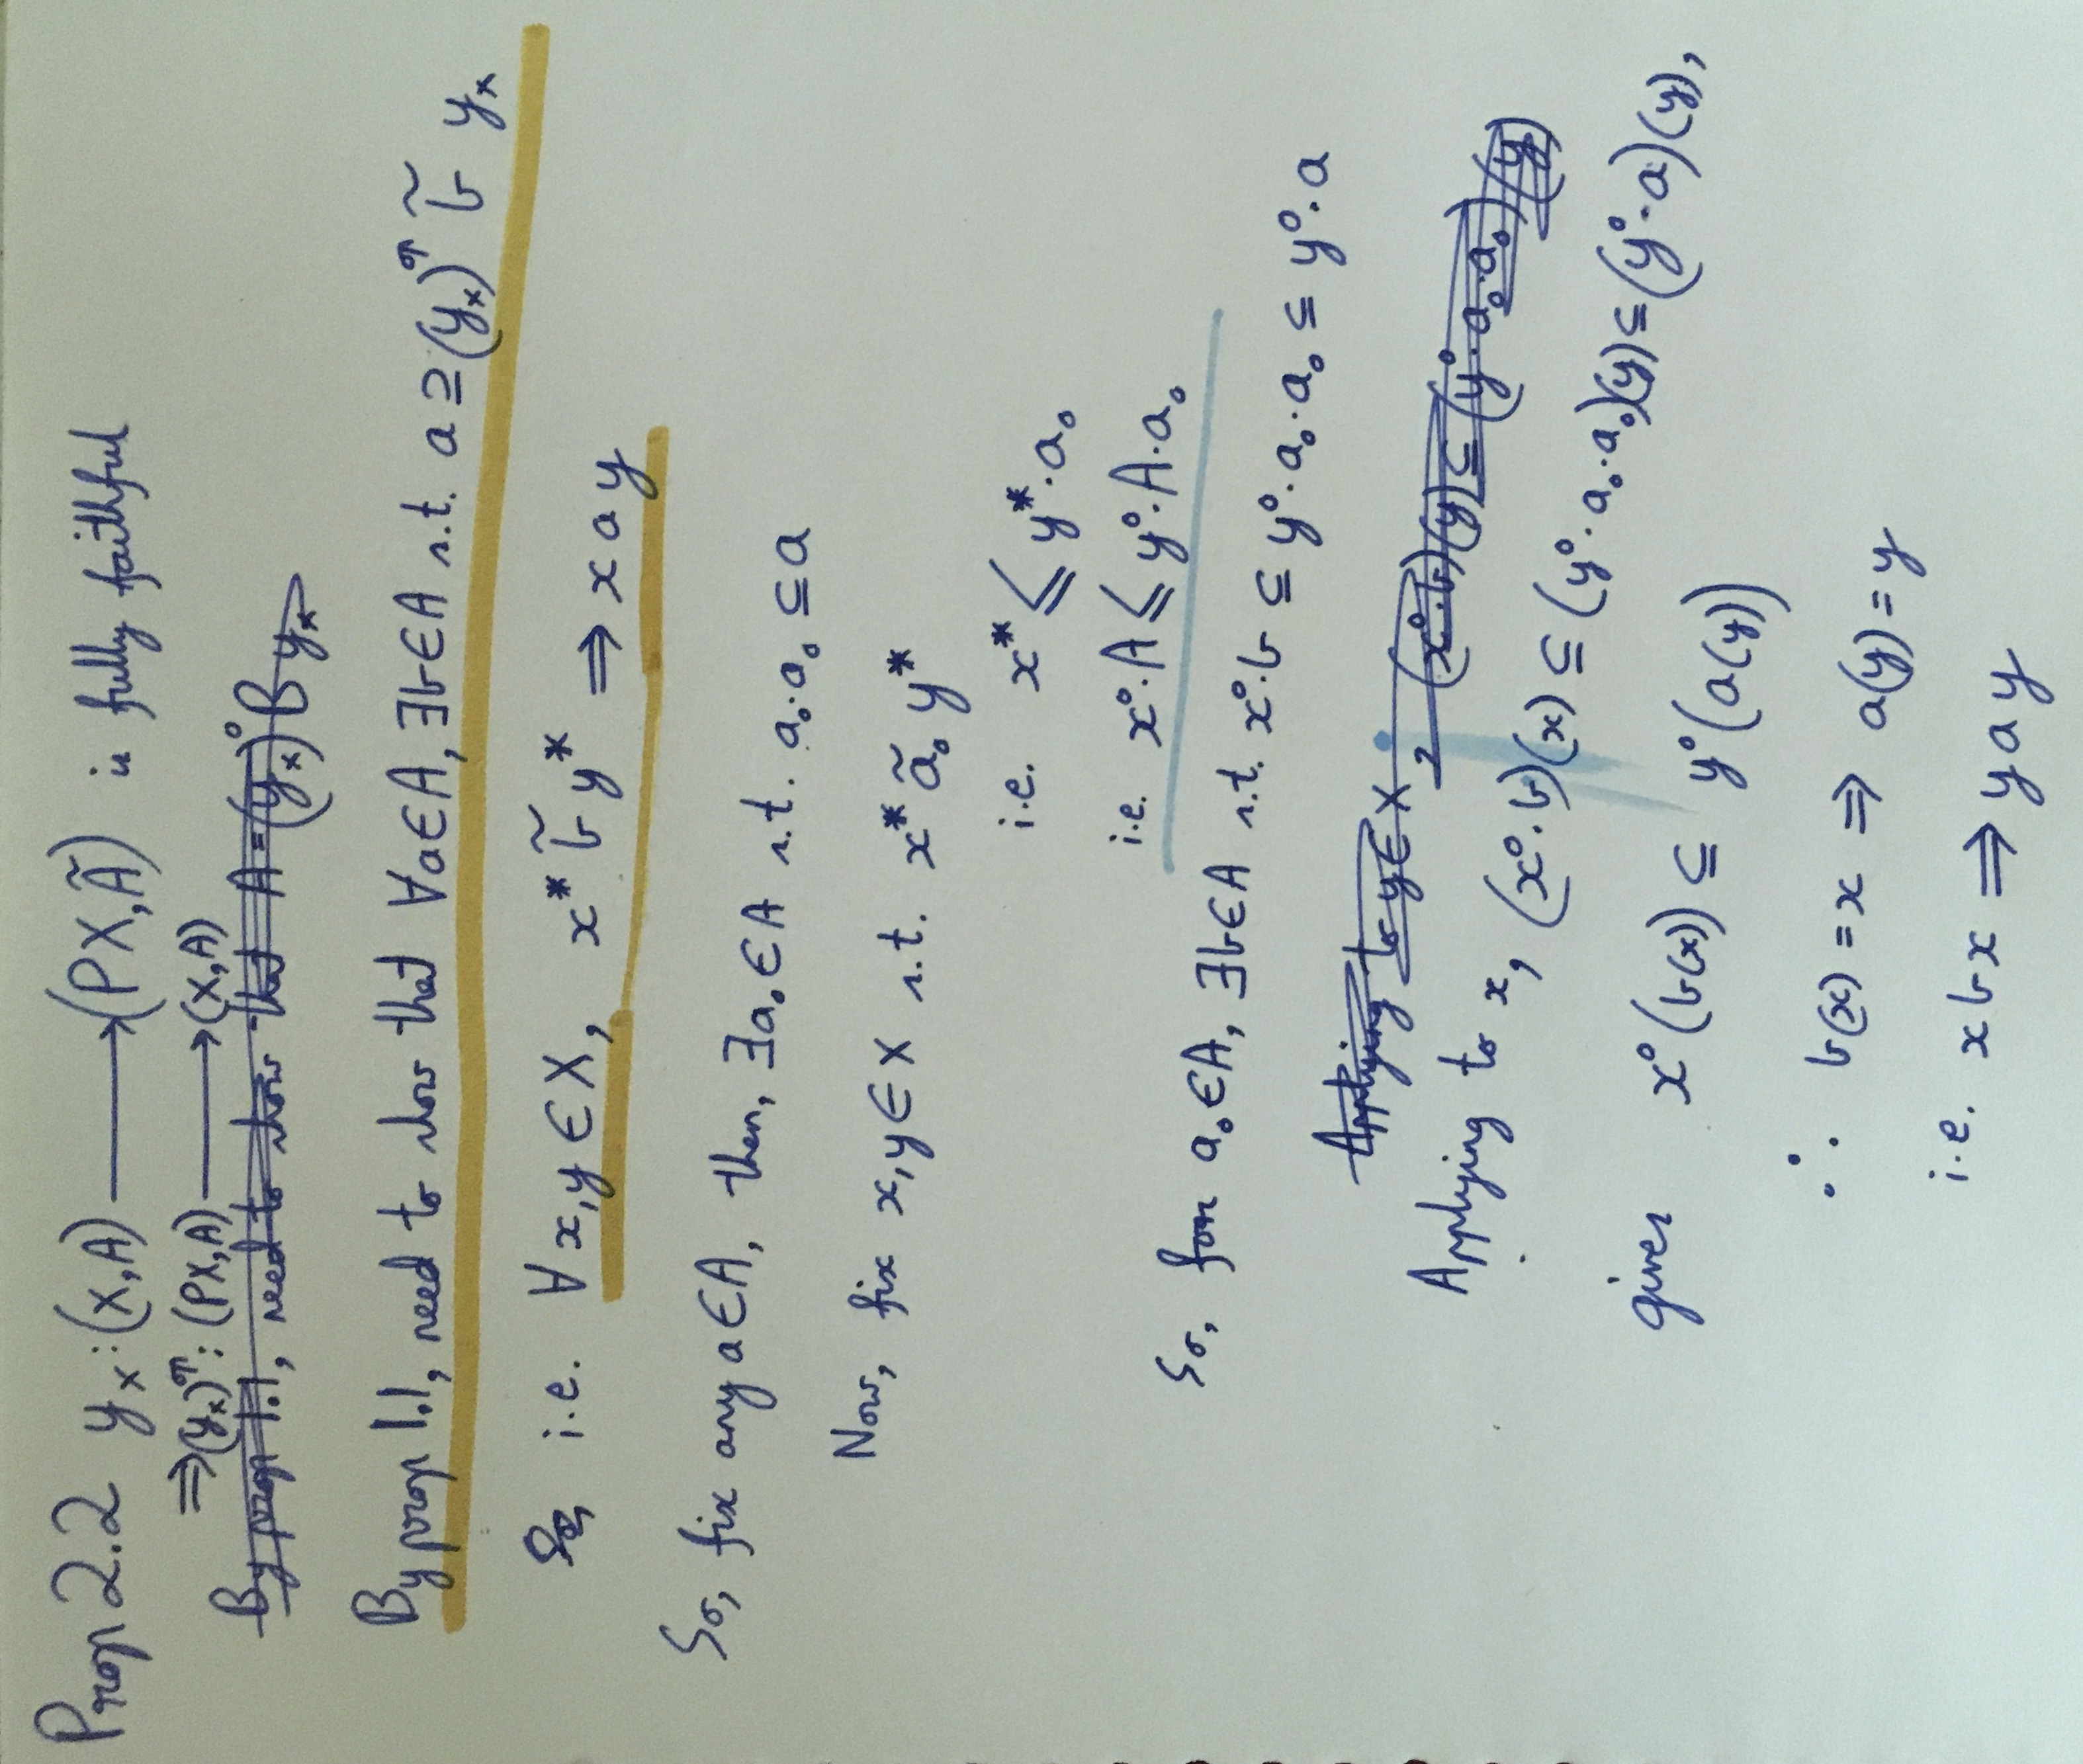 Prop 2.2 y_x : (X,A) ⟶ (PX,Ã) is fully faithful
⇒ (y_x)^↑ : (PX,A) ⟶ (X,A)
By prop 1.1, need to show that A = (y_x)° B y_x
By prop 1.1, need to show that ∀a∈A, ∃b∈A s.t. a ⊇ (y_x)^↑ b̃ y_x
i.e. ∀x,y ∈ X, x* b̃ y* ⇒ x a y
So, fix any a∈A, then, ∃a₀∈A s.t. a₀·a₀ ⊆ a
Now, fix x,y∈X s.t. x* ã₀ y*
i.e. x* ≤ y*·a₀
i.e. x°·A ≤ y°·A·a₀
So, for a₀∈A, ∃b∈A s.t. x°·b ⊆ y°·a₀·a₀ ⊆ y°·a
Applying to y∈X, (x°·b)(y) ⊆ (y°·a₀·a₀)(y)
Applying to x, (x°·b)(x) ⊆ (y°·a₀·a₀)(y) ⊆ (y°·a)(y),
gives x°(b(x)) ⊆ y°(a(y))
∴ b(x) = x ⇒ a(y) = y
i.e. x b x ⇒ y a y